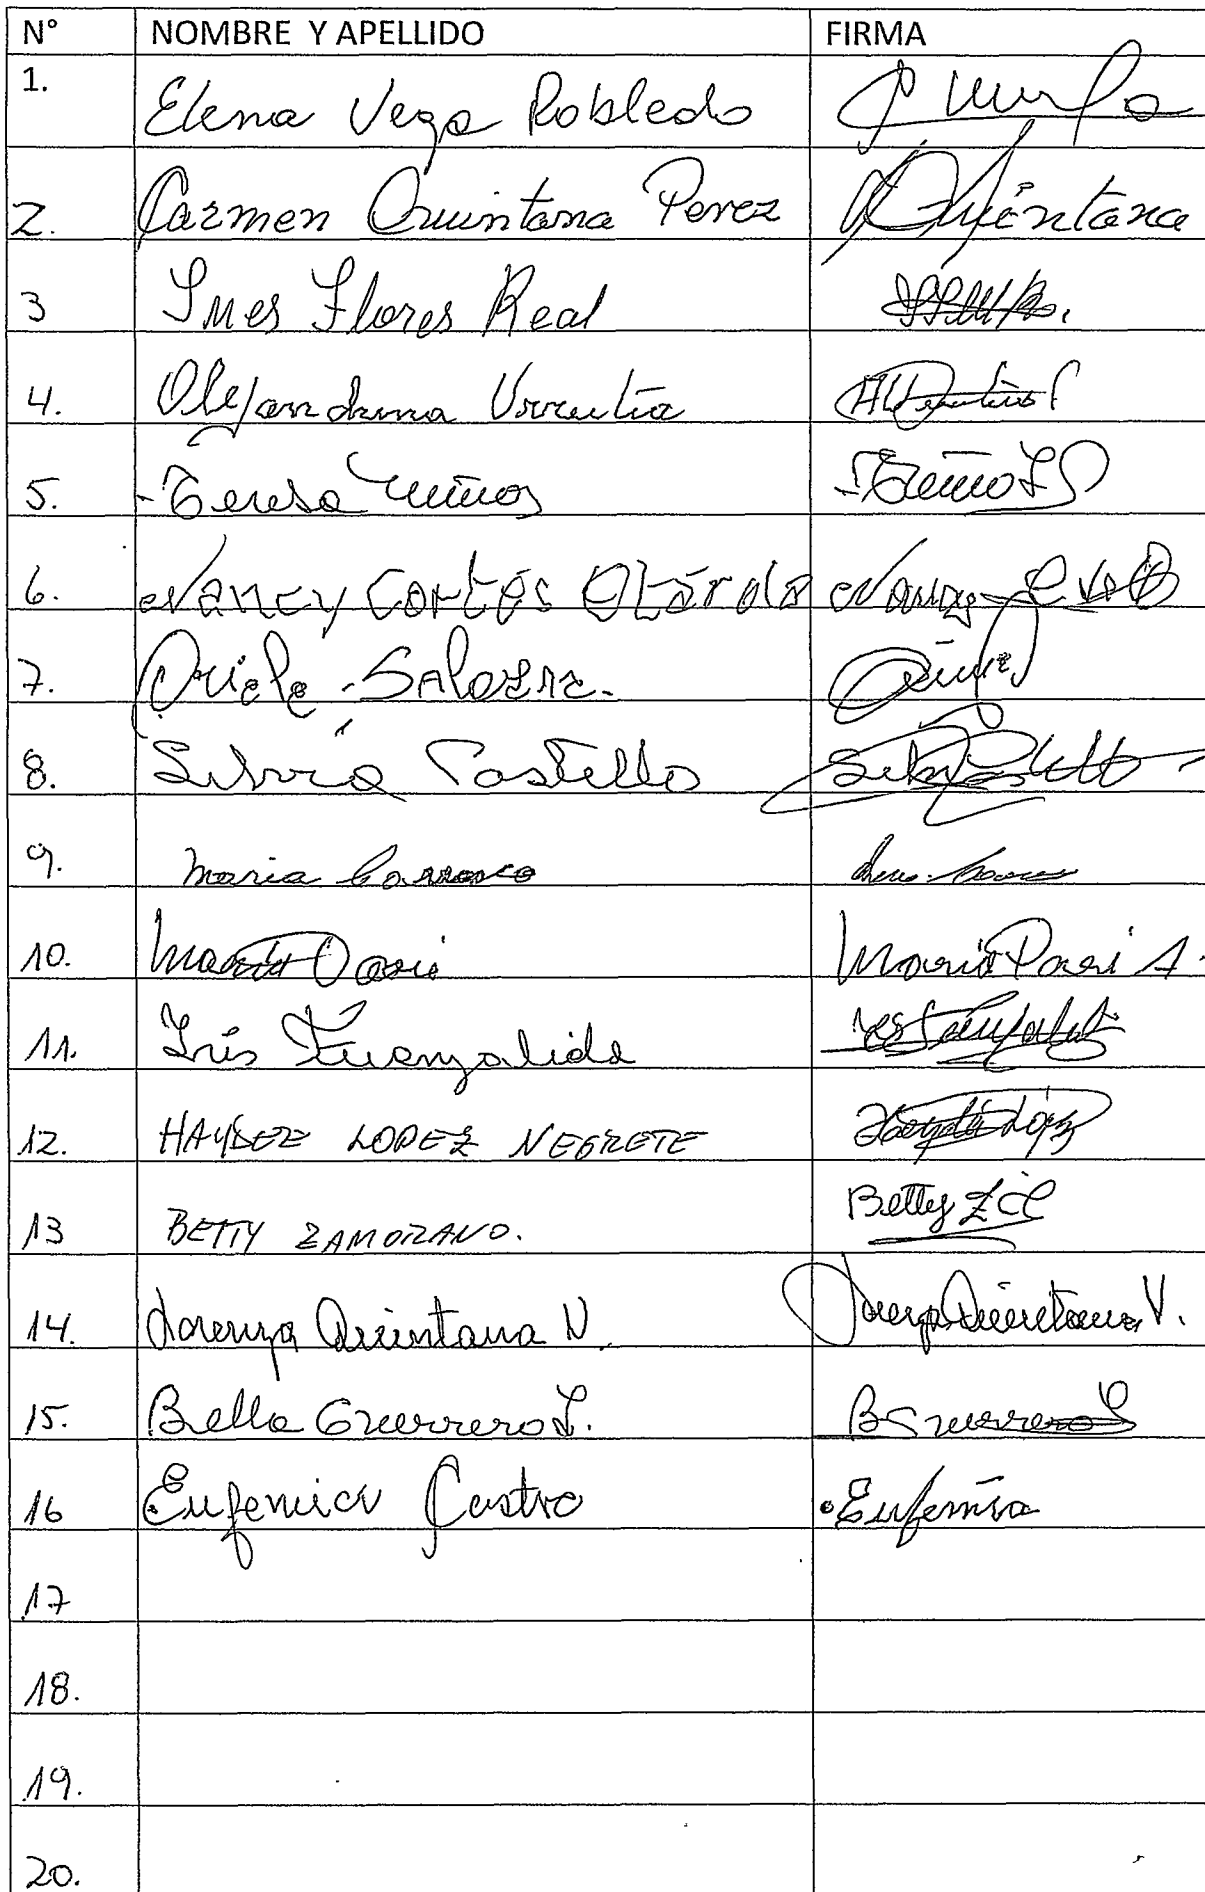 N° NOMBRE Y APELLIDO FIRMA
1. Elena Vega Robledo
2. Carmen Quintana Perez Quintana
3 Ines Flores Real
4. Alejandrina Urrutia
5. -Teresa
6. Nancy Cortés Otárola Nancy
7. Oriele Salazar.
8. Silvia Castillo
9. Maria Carrasco
10. Maria Pasi Maria Pasi A.
11. Iris Fuenzalida
12. HAYDEE LOPEZ NEGRETE Haydee López
13 BETTY ZAMORANO. Betty Z C
14. Lorenza Quintana V. Lorenza Quintana V.
15. Bella Guerrero L. B Guerrero L
16 Eufemia Castro Eufemia
17
18.
19.
20.